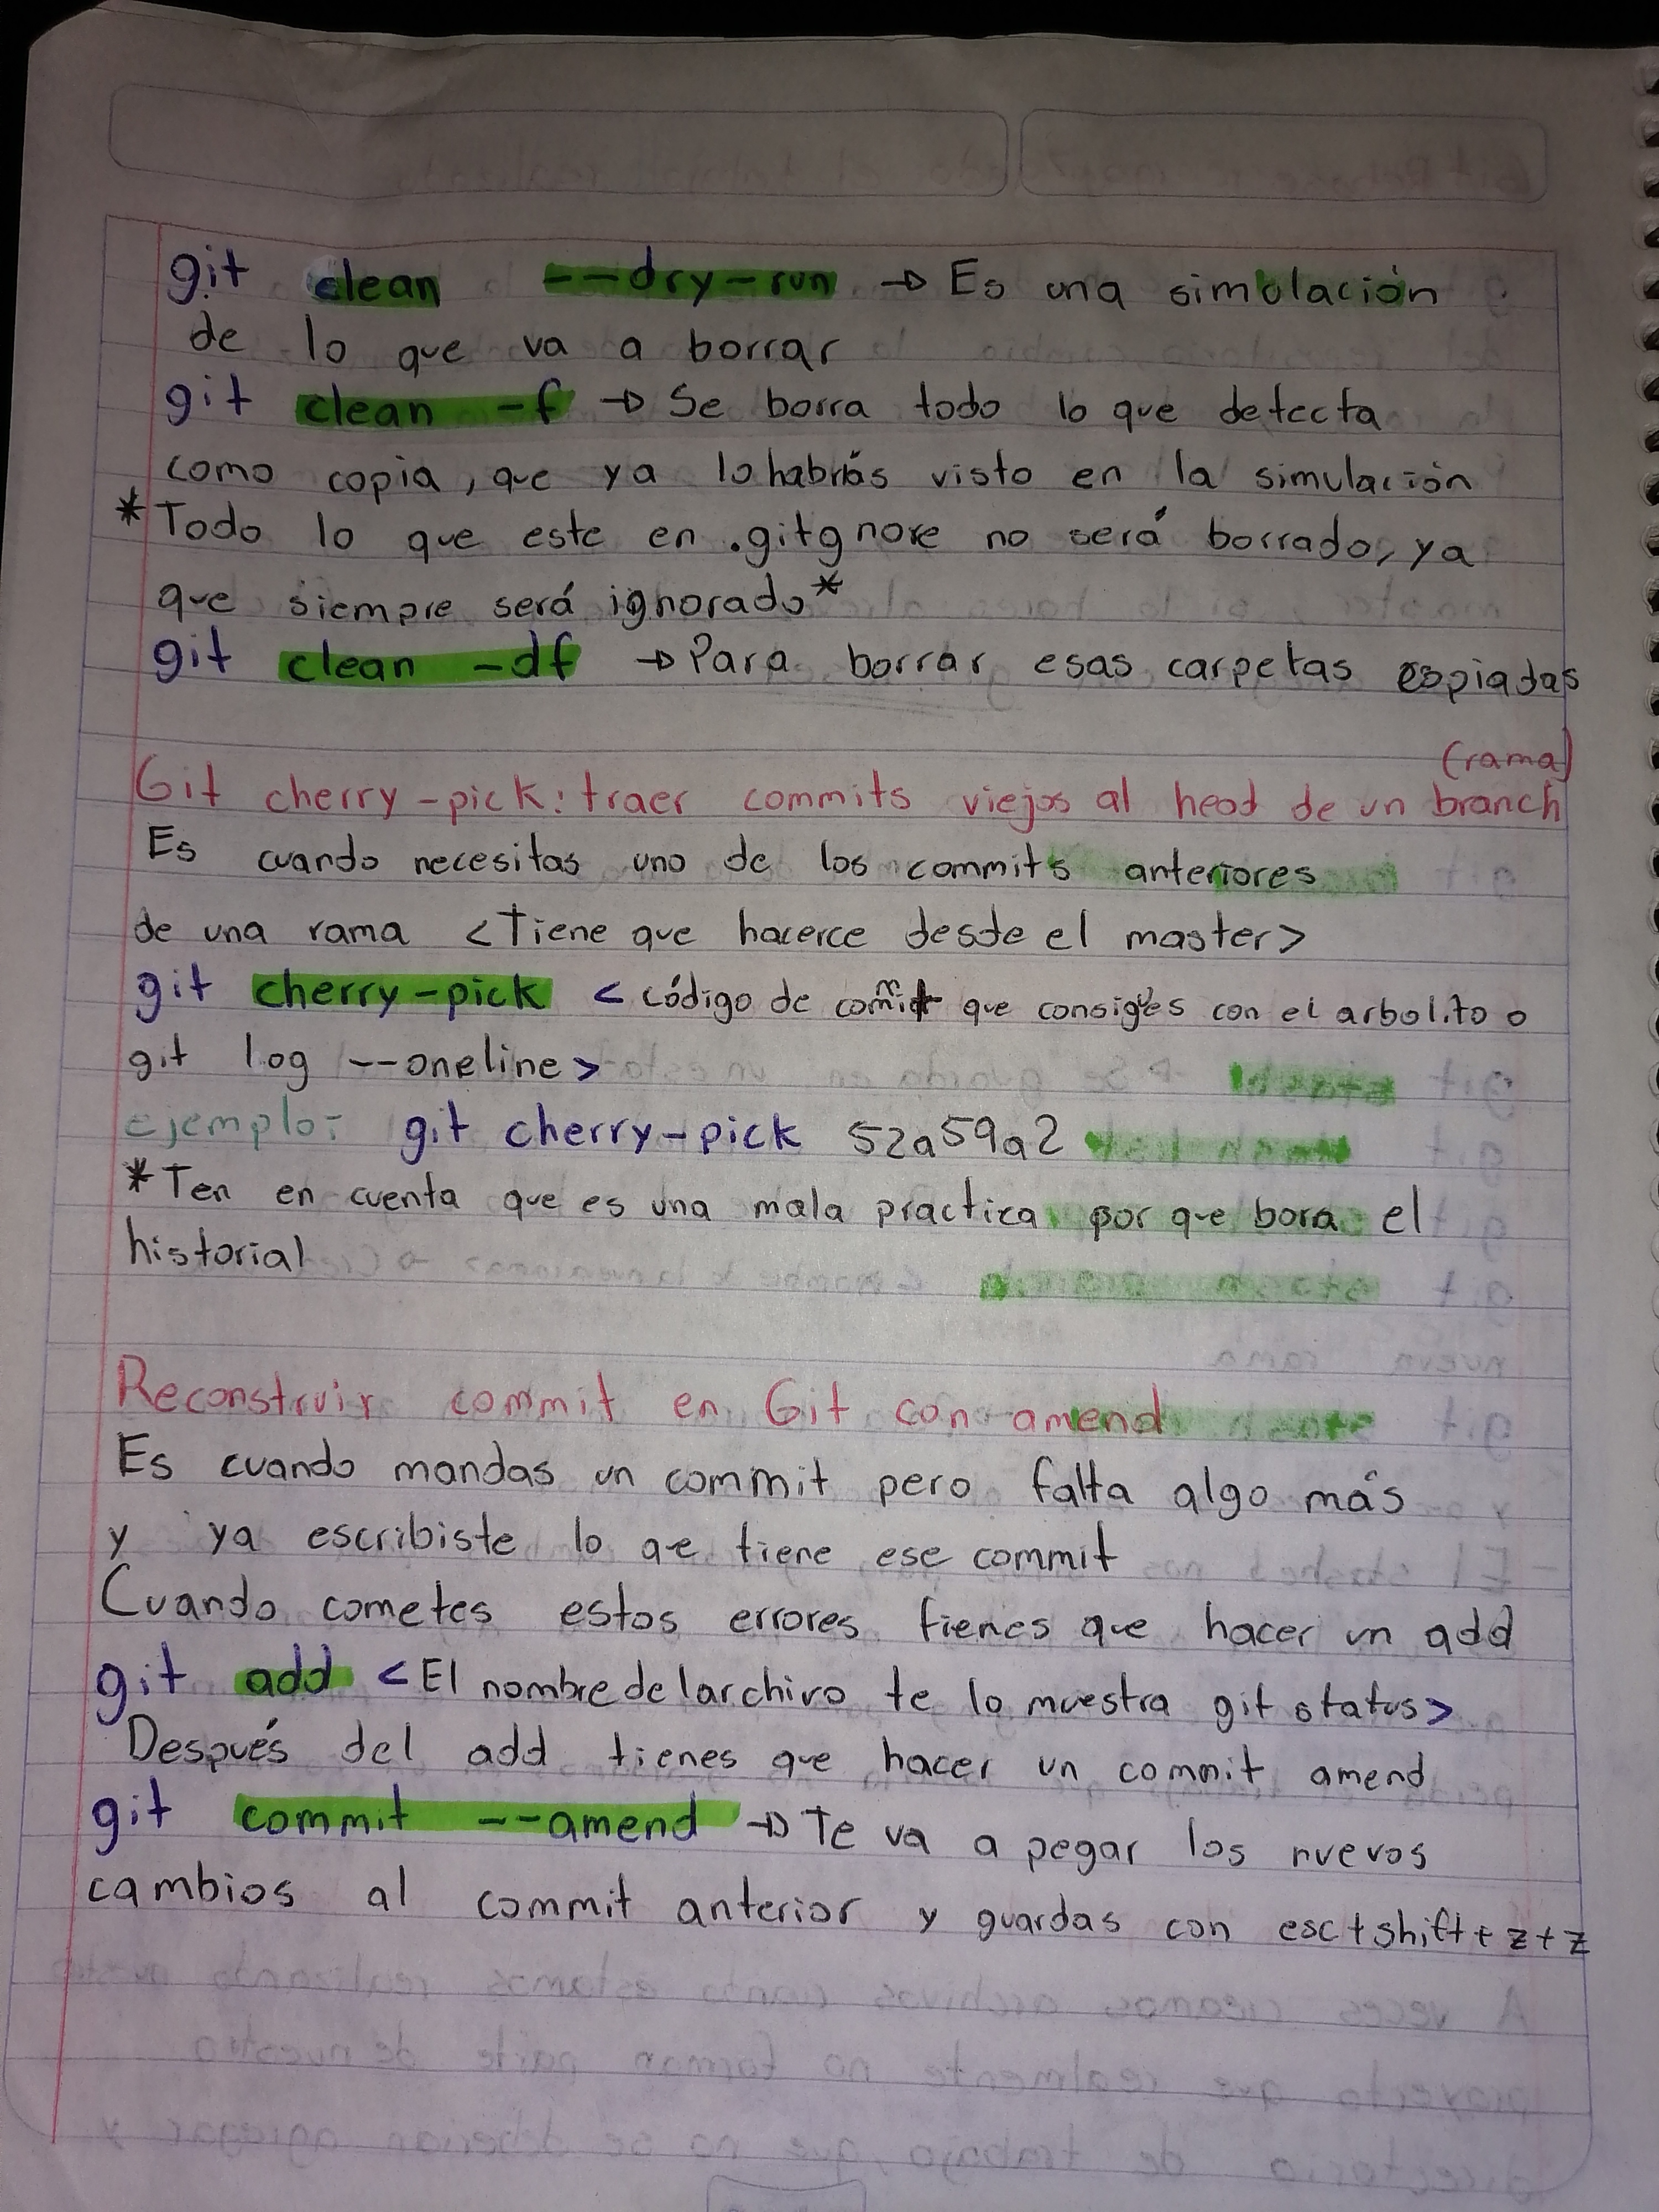 git clean --dry-run → Es una simulación
de lo que va a borrar
git clean -f → Se borra todo lo que detecta
como copia, que ya lo habrás visto en la simulación
*Todo lo que este en .gitgnore no será borrado, ya
que siempre será ignorado*
git clean -df → Para borrar esas carpetas copiadas
(rama)
Git cherry-pick: traer commits viejos al head de un branch
Es cuando necesitas uno de los commits anteriores
de una rama <Tiene que hacerce desde el master>
git cherry-pick < código de commit que consigues con el arbolito o
git log --oneline>
ejemplo: git cherry-pick 52a59a2
*Ten en cuenta que es una mala practica por que bora el
historial
Reconstruir commit en Git con amend
Es cuando mandas un commit pero falta algo más
y ya escribiste lo qe tiene ese commit
Cuando cometes estos errores tienes que hacer un add
git add <El nombre del archivo te lo muestra git status>
Después del add tienes que hacer un commit amend
git commit --amend → Te va a pegar los nuevos
cambios al commit anterior y guardas con esc+shift+z+z